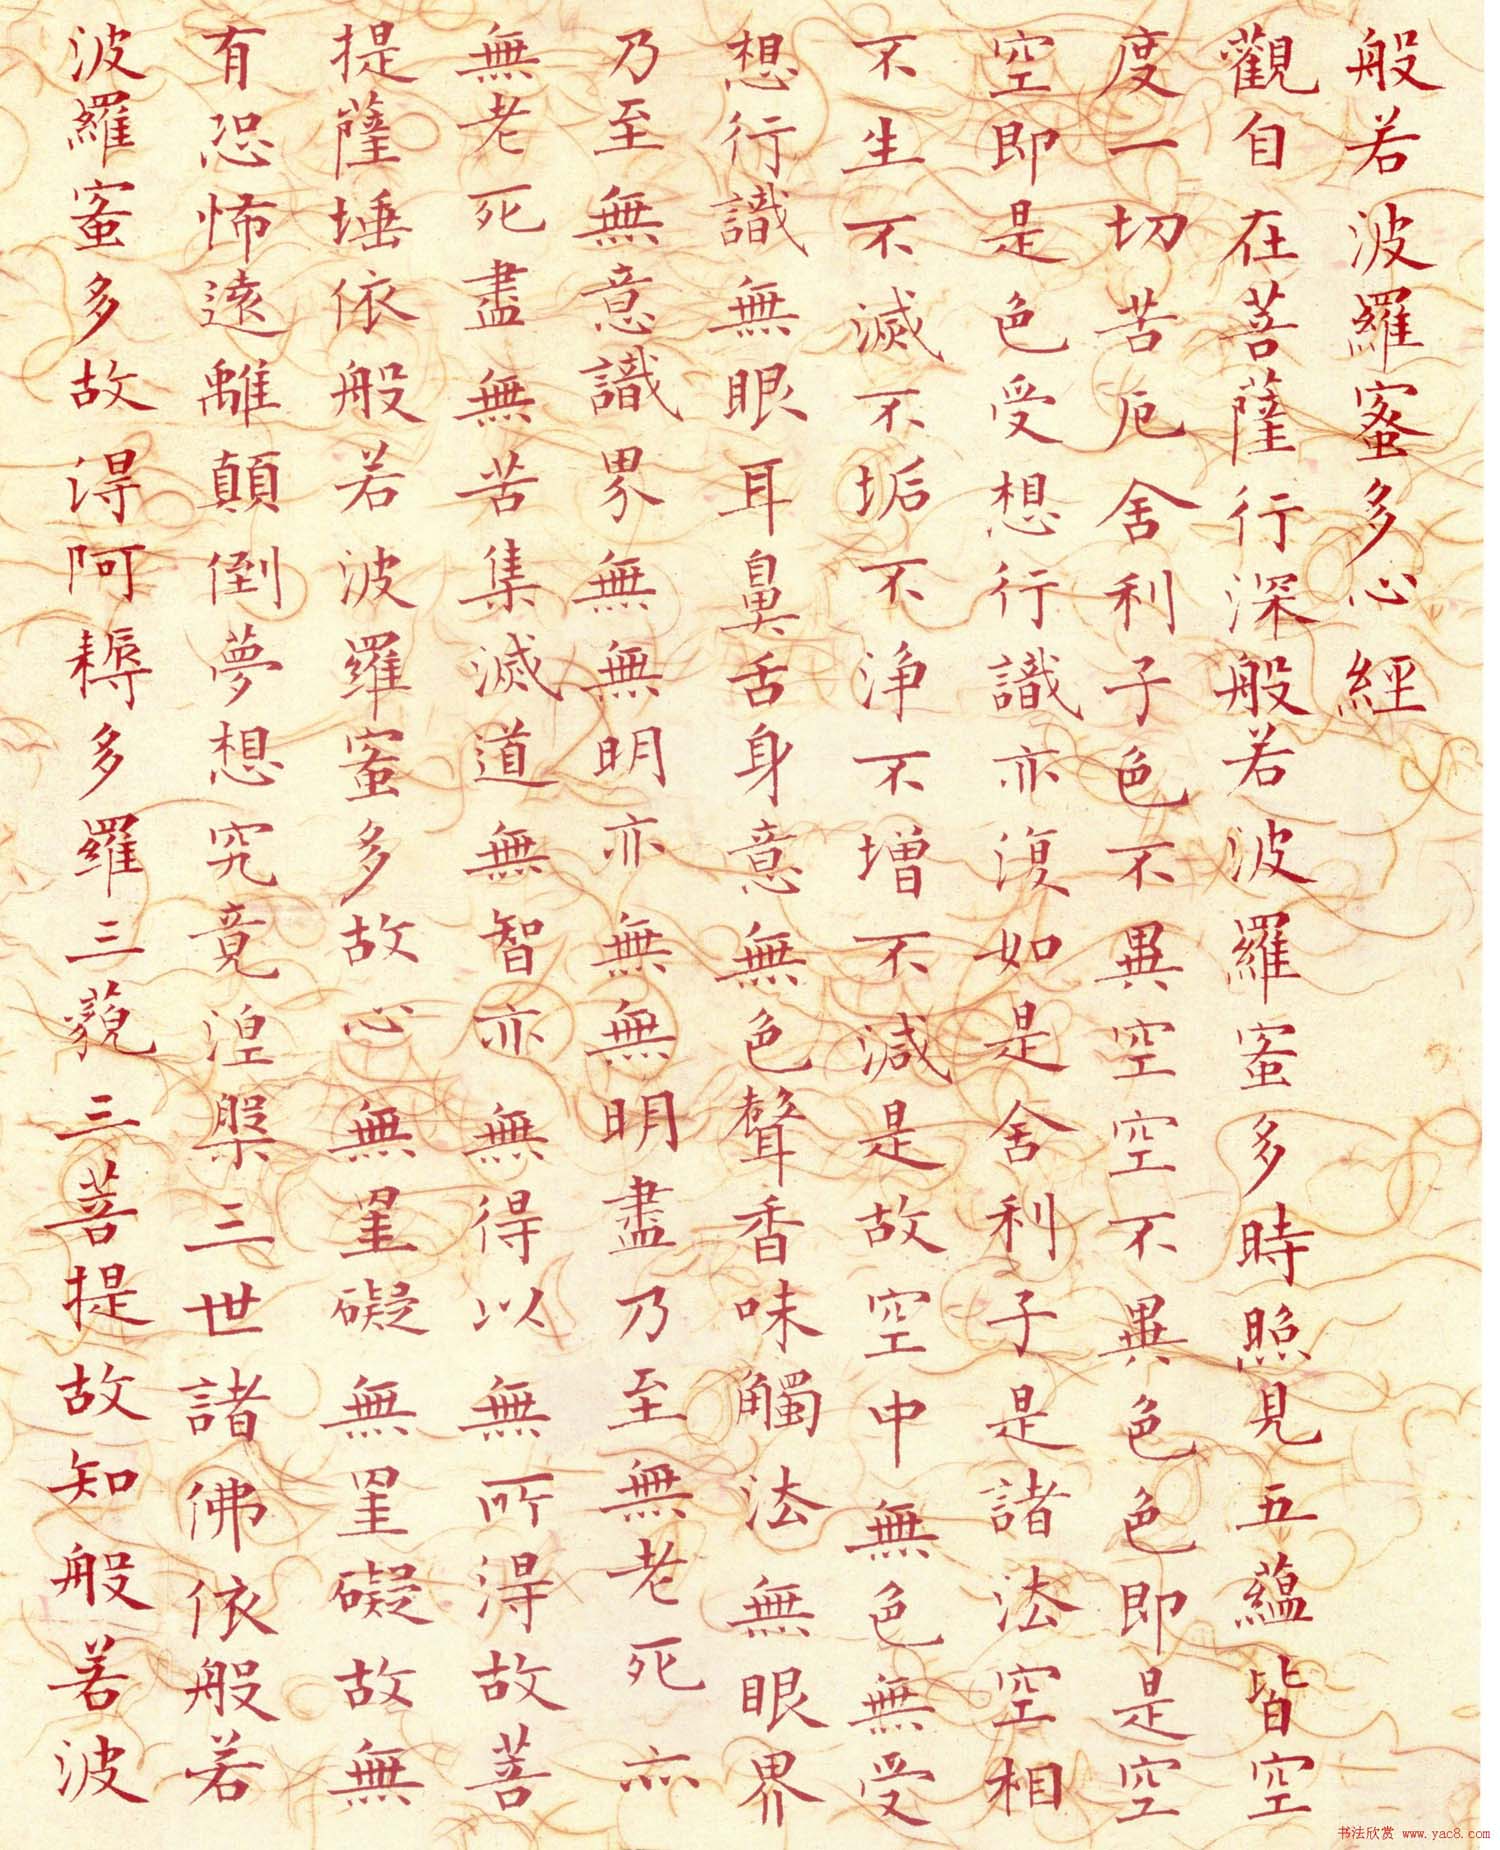 般若波羅蜜多心經
觀自在菩薩行深般若波羅蜜多時照見五蘊皆空
度一切苦厄舍利子色不異空空不異色色即是空
空即是色受想行識亦復如是舍利子是諸法空相
不生不滅不垢不淨不增不減是故空中無色無受
想行識無眼耳鼻舌身意無色聲香味觸法無眼界
乃至無意識界無無明亦無無明盡乃至無老死亦
無老死盡無苦集滅道無智亦無得以無所得故菩
提薩埵依般若波羅蜜多故心無罣礙無罣礙故無
有恐怖遠離顛倒夢想究竟涅槃三世諸佛依般若
波羅蜜多故得阿耨多羅三藐三菩提故知般若波
书法欣赏 www.yac8.com